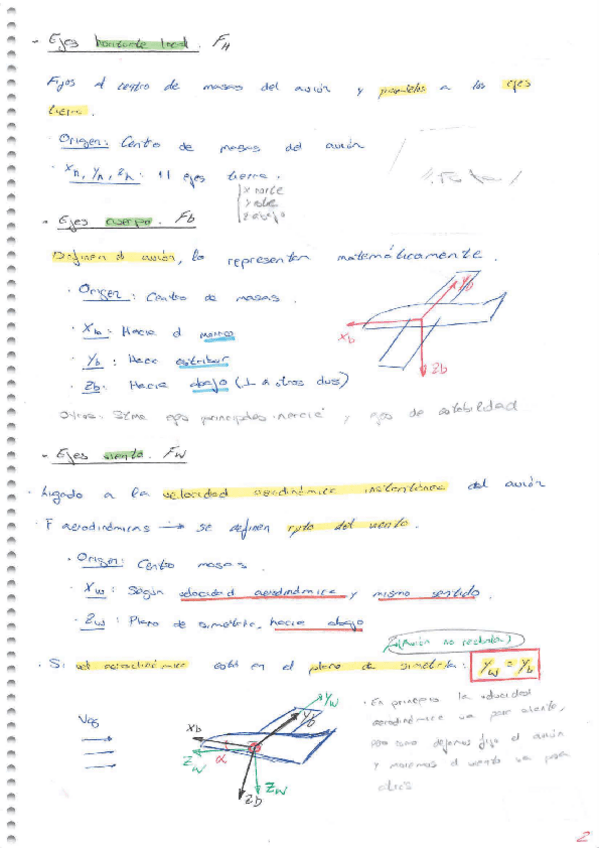 - Ejes horizonte local. FH
Fijos al centro de masas del avión y paralelos a los ejes
tierra.
· Origen: Centro de masas del avión
· xh, yh, zh: // ejes tierra.
x norte
y este
z abajo
- Ejes cuerpo. Fb
Definen el avión, lo representan matemáticamente.
· Origen: Centro de masas.
· Xb: Hacia el morro
· Yb: Hacia estribor
· Zb: Hacia abajo (⊥ a otros dos)
Xb
Yb
Zb
Otros: ejes principales inercia y ejes de estabilidad
- Ejes viento. FW
· Ligado a la velocidad aerodinámica instantánea del avión
· F aerodinámicas → se definen rpto del viento.
· Origen: Centro masas.
· Xw: Según velocidad aerodinámica y mismo sentido.
· Zw: Plano de simetría, hacia abajo
(Avión no resbala)
· Si vel aerodinámica está en el plano de simetría: Yw = Yb
· En principio la velocidad
aerodinámica va para delante,
dejamos fijo el avión
y movemos el viento va para
atrás
Xb
Yw
Yb
Zw
α
Zw
Zb
2